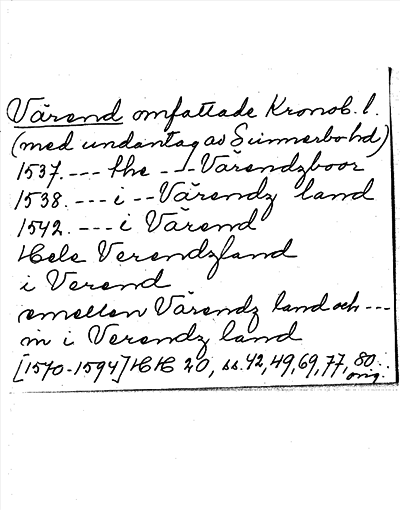 Värend omfattade Kronob. l.
(med undantag av Sunnerbo hd)
1537. --- the --- Värendzboor
1538. --- i -- Värendz land
1542. --- i Värend
Hele Verendzland
i Verend
emellon Värendz land och ---
in i Verendz land
[1570-1594] HH 20, ss. 42, 49, 69, 77, 80.
orig.